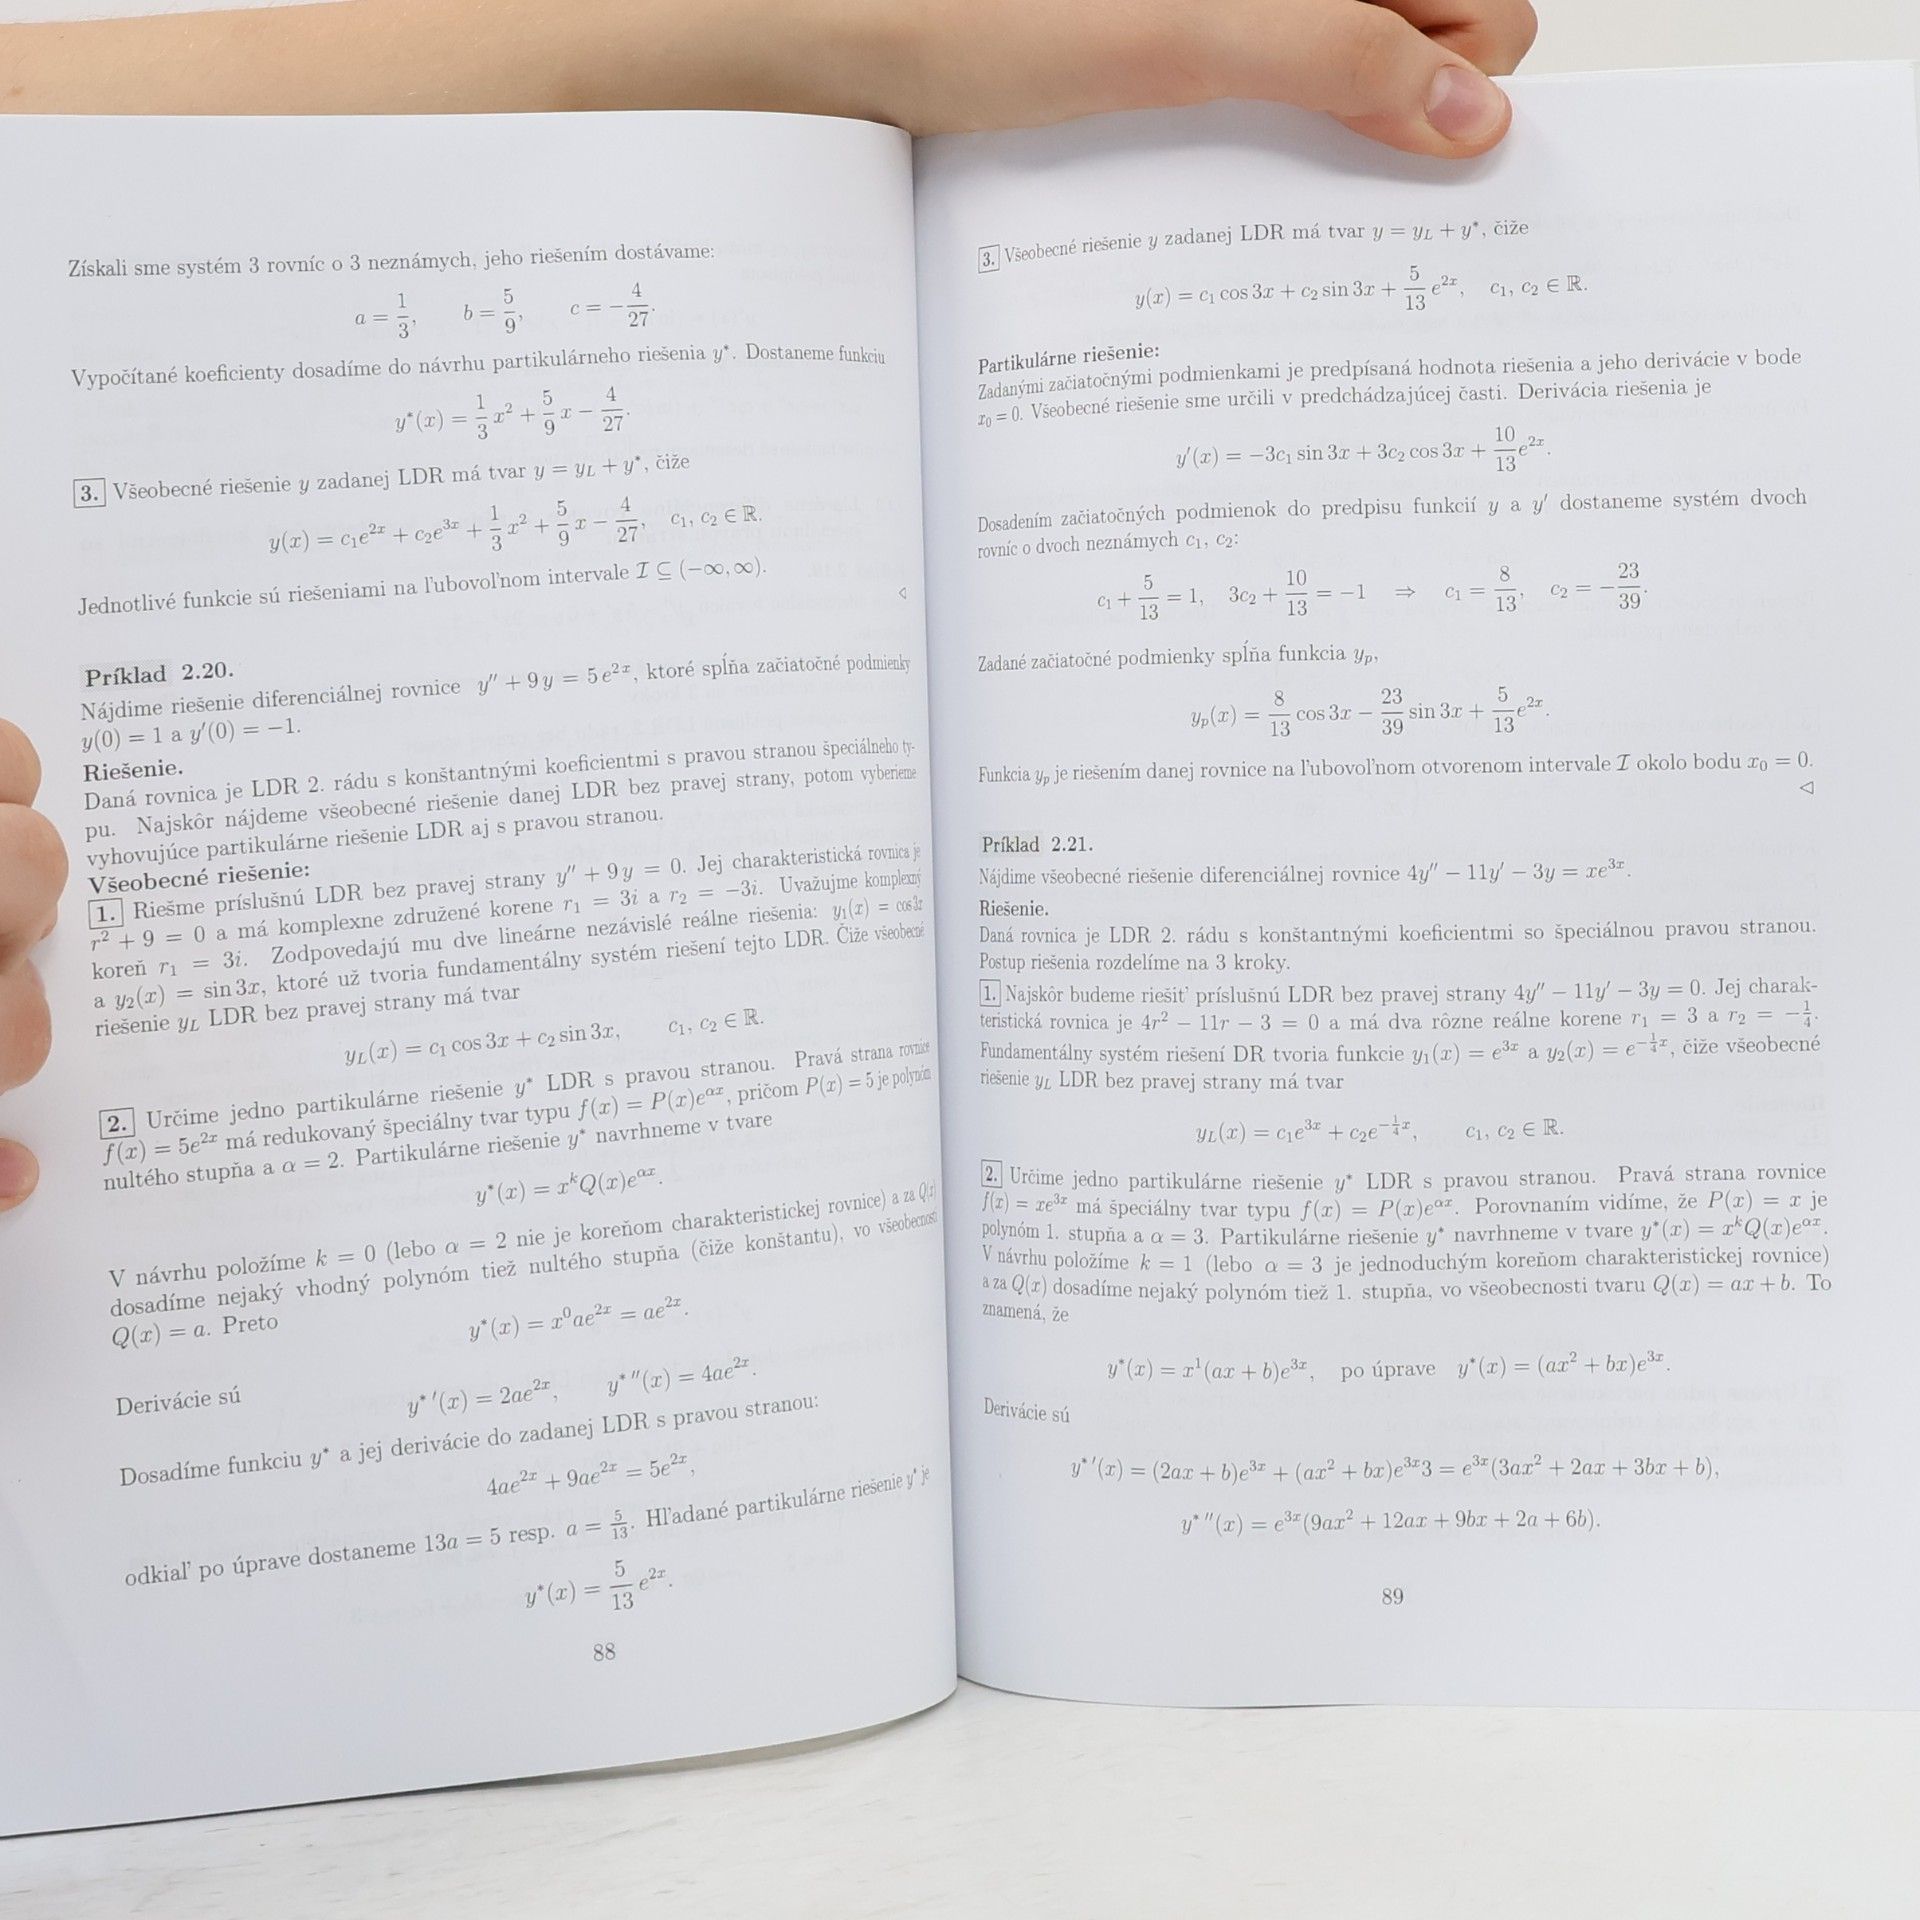 Získali sme systém 3 rovníc o 3 neznámych, jeho riešením dostávame:
a = 1/3, b = 5/9, c = −4/27.
Vypočítané koeficienty dosadíme do návrhu partikulárneho riešenia y*. Dostaneme funkciu
y*(x) = 1/3 x² + 5/9 x − 4/27.
3. Všeobecné riešenie y zadanej LDR má tvar y = y_L + y*, čiže
y(x) = c₁e^{2x} + c₂e^{3x} + 1/3 x² + 5/9 x − 4/27, c₁, c₂ ∈ ℝ.
Jednotlivé funkcie sú riešeniami na ľubovoľnom intervale I ⊆ (−∞, ∞).
◁
Príklad 2.20.
Nájdime riešenie diferenciálnej rovnice y″ + 9 y = 5 e^{2x}, ktoré spĺňa začiatočné podmienky
y(0) = 1 a y′(0) = −1.
Riešenie.
Daná rovnica je LDR 2. rádu s konštantnými koeficientmi s pravou stranou špeciálneho ty-
pu. Najskôr nájdeme všeobecné riešenie danej LDR bez pravej strany, potom vyberieme
vyhovujúce partikulárne riešenie LDR aj s pravou stranou.
Všeobecné riešenie:
1. Riešme príslušnú LDR bez pravej strany y″ + 9 y = 0. Jej charakteristická rovnica je
r² + 9 = 0 a má komplexne združené korene r₁ = 3i a r₂ = −3i. Uvažujme komplexný
koreň r₁ = 3i. Zodpovedajú mu dve lineárne nezávislé reálne riešenia: y₁(x) = cos 3x
a y₂(x) = sin 3x, ktoré už tvoria fundamentálny systém riešení tejto LDR. Čiže všeobecné
riešenie y_L LDR bez pravej strany má tvar
y_L(x) = c₁ cos 3x + c₂ sin 3x, c₁, c₂ ∈ ℝ.
2. Určime jedno partikulárne riešenie y* LDR s pravou stranou. Pravá strana rovnice
f(x) = 5e^{2x} má redukovaný špeciálny tvar typu f(x) = P(x)e^{αx}, pričom P(x) = 5 je polynóm
nultého stupňa a α = 2. Partikulárne riešenie y* navrhneme v tvare
y*(x) = x^k Q(x)e^{αx}.
V návrhu položíme k = 0 (lebo α = 2 nie je koreňom charakteristickej rovnice) a za Q(x)
dosadíme nejaký vhodný polynóm tiež nultého stupňa (čiže konštantu), vo všeobecnosti
Q(x) = a. Preto
y*(x) = x⁰ae^{2x} = ae^{2x}.
Derivácie sú y*′(x) = 2ae^{2x}, y*″(x) = 4ae^{2x}.
Dosadíme funkciu y* a jej derivácie do zadanej LDR s pravou stranou:
4ae^{2x} + 9ae^{2x} = 5e^{2x},
odkiaľ po úprave dostaneme 13a = 5 resp. a = 5/13. Hľadané partikulárne riešenie y* je
y*(x) = 5/13 e^{2x}.
88
3. Všeobecné riešenie y zadanej LDR má tvar y = y_L + y*, čiže
y(x) = c₁ cos 3x + c₂ sin 3x + 5/13 e^{2x}, c₁, c₂ ∈ ℝ.
Partikulárne riešenie:
Zadanými začiatočnými podmienkami je predpísaná hodnota riešenia a jeho derivácie v bode
x₀ = 0. Všeobecné riešenie sme určili v predchádzajúcej časti. Derivácia riešenia je
y′(x) = −3c₁ sin 3x + 3c₂ cos 3x + 10/13 e^{2x}.
Dosadením začiatočných podmienok do predpisu funkcií y a y′ dostaneme systém dvoch
rovníc o dvoch neznámych c₁, c₂:
c₁ + 5/13 = 1, 3c₂ + 10/13 = −1 ⇒ c₁ = 8/13, c₂ = −23/39.
Zadané začiatočné podmienky spĺňa funkcia y_p,
y_p(x) = 8/13 cos 3x − 23/39 sin 3x + 5/13 e^{2x}.
Funkcia y_p je riešením danej rovnice na ľubovoľnom otvorenom intervale I okolo bodu x₀ = 0.
◁
Príklad 2.21.
Nájdime všeobecné riešenie diferenciálnej rovnice 4y″ − 11y′ − 3y = xe^{3x}.
Riešenie.
Daná rovnica je LDR 2. rádu s konštantnými koeficientmi so špeciálnou pravou stranou.
Postup riešenia rozdelíme na 3 kroky.
1. Najskôr budeme riešiť príslušnú LDR bez pravej strany 4y″ − 11y′ − 3y = 0. Jej charak-
teristická rovnica je 4r² − 11r − 3 = 0 a má dva rôzne reálne korene r₁ = 3 a r₂ = −1/4.
Fundamentálny systém riešení DR tvoria funkcie y₁(x) = e^{3x} a y₂(x) = e^{−1/4 x}, čiže všeobecné
riešenie y_L LDR bez pravej strany má tvar
y_L(x) = c₁e^{3x} + c₂e^{−1/4 x}, c₁, c₂ ∈ ℝ.
2. Určime jedno partikulárne riešenie y* LDR s pravou stranou. Pravá strana rovnice
f(x) = xe^{3x} má špeciálny tvar typu f(x) = P(x)e^{αx}. Porovnaním vidíme, že P(x) = x je
polynóm 1. stupňa a α = 3. Partikulárne riešenie y* navrhneme v tvare y*(x) = x^k Q(x)e^{αx}.
V návrhu položíme k = 1 (lebo α = 3 je jednoduchým koreňom charakteristickej rovnice)
a za Q(x) dosadíme nejaký polynóm tiež 1. stupňa, vo všeobecnosti tvaru Q(x) = ax + b. To
znamená, že
y*(x) = x¹(ax + b)e^{3x}, po úprave y*(x) = (ax² + bx)e^{3x}.
Derivácie sú
y*′(x) = (2ax + b)e^{3x} + (ax² + bx)e^{3x}3 = e^{3x}(3ax² + 2ax + 3bx + b),
y*″(x) = e^{3x}(9ax² + 12ax + 9bx + 2a + 6b).
89